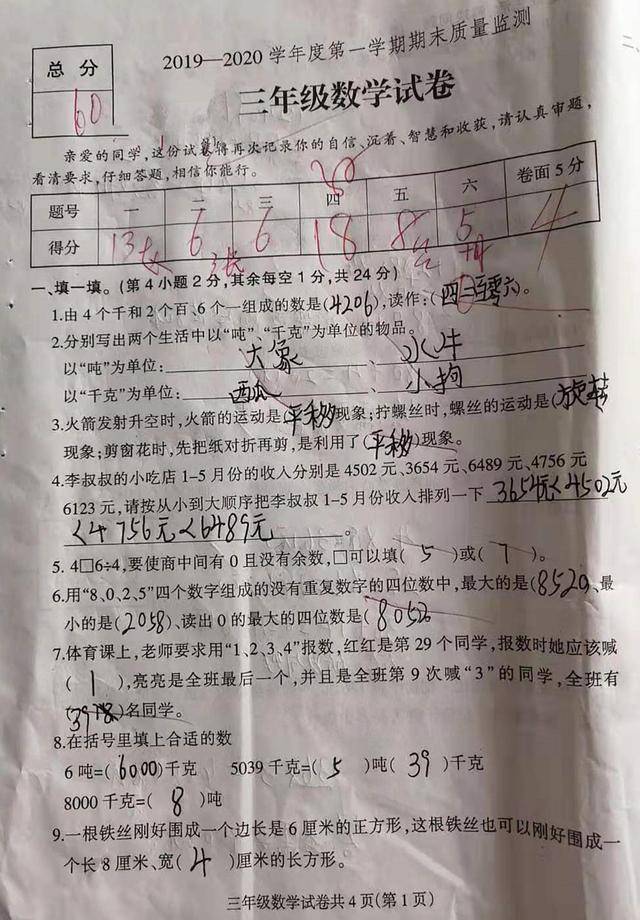 2019—2020学年度第一学期期末质量监测
总分
60
三年级数学试卷
亲爱的同学,这份试卷将再次记录你的自信、沉着、智慧和收获,请认真审题,
看清要求,仔细答题,相信你能行。
30
题号 一 二 三 四 五 六 卷面5分
得分 13 6 6 18 8 5 4
一、填一填。(第4小题2分,其余每空1分,共24分)
1.由4个千和2个百、6个一组成的数是(4206),读作:(四二百零六)。
2.分别写出两个生活中以“吨”、“千克”为单位的物品。
以“吨”为单位: 大象 、 水牛
以“千克”为单位: 西瓜 、 小狗
3.火箭发射升空时,火箭的运动是(平移)现象;拧螺丝时,螺丝的运动是(旋转)
现象;剪窗花时,先把纸对折再剪,是利用了(平移)现象。
4.李叔叔的小吃店1-5月份的收入分别是4502元、3654元、6489元、4756元
6123元,请按从小到大顺序把李叔叔1-5月份收入排列一下 3654元<4502元
<4756元<6489元 。
5. 4□6÷4,要使商中间有0且没有余数,□可以填( 5 )或( 7 )。
6.用“8、0、2、5”四个数字组成的没有重复数字的四位数中,最大的是(8520)、最
小的是(2058)、读出0的最大的四位数是(8052)
7.体育课上,老师要求用“1、2、3、4”报数,红红是第29个同学,报数时她应该喊
( 1 ),亮亮是全班最后一个,并且是全班第9次喊“3”的同学,全班有
(39)名同学。
8.在括号里填上合适的数
6吨=(6000)千克 5039千克=( 5 )吨( 39 )千克
8000千克=( 8 )吨
9.一根铁丝刚好围成一个边长是6厘米的正方形,这根铁丝也可以刚好围成一
个长8厘米、宽( 4 )厘米的长方形。
三年级数学试卷共4页(第1页)